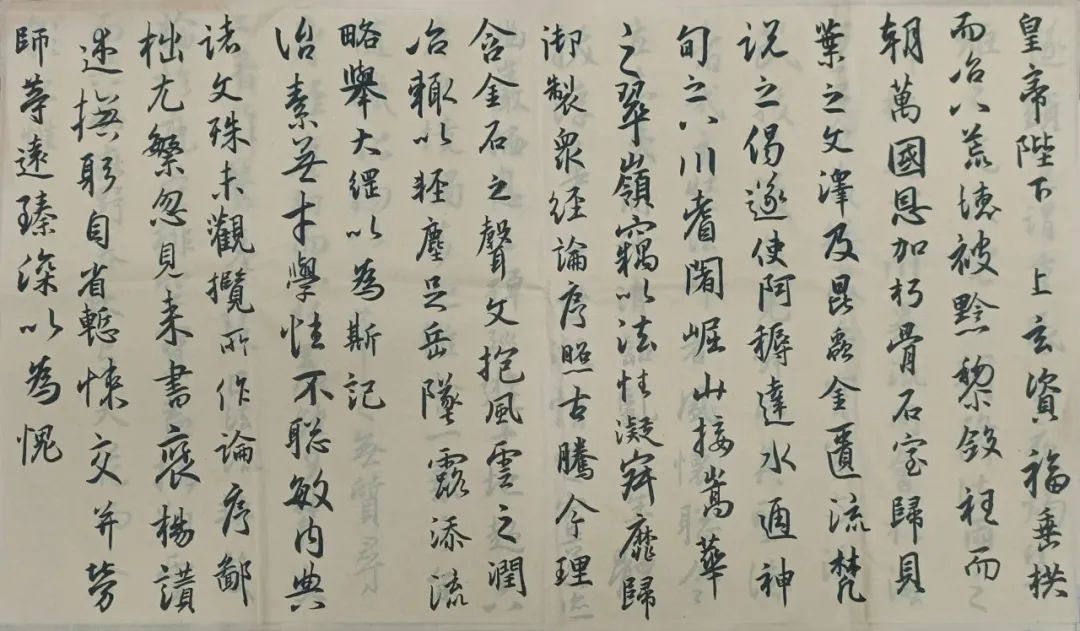 皇帝陛下上玄資福垂拱
而治八荒德被黔黎斂衽而
朝萬國恩加朽骨石室歸貝
葉之文澤及昆蟲金匱流梵
说之偈遂使阿耨達水通神
旬之八川耆闍崛山接嵩華
之翠嶺竊以法性凝寂靡歸
御製眾經論序照古騰今理
含金石之聲文抱風雲之潤
治輒以輕塵足岳墜露添流
略舉大綱以為斯記
治素無才學性不聰敏內典
諸文殊未觀攬所作論序鄙
拙尤繁忽見來書褒揚讚
述撫躬自省慙悚交并勞
師等遠臻深以為愧